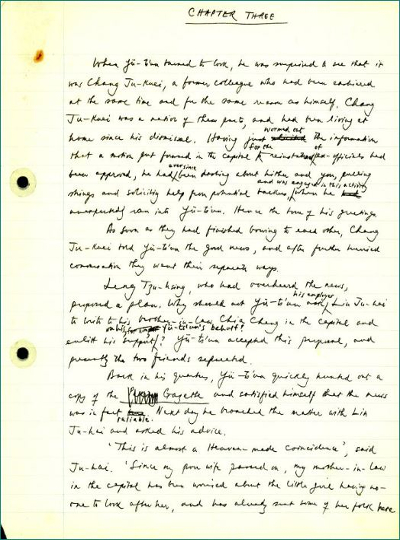 CHAPTER THREE
When Yü-ts'un turned to look, he was surprised to see that it
was Chang Ju-kuei, a former colleague who had been cashiered
at the same time and for the same reason as himself. Chang
Ju-kuei was a native of these parts, and had been living at
home since his dismissal. Having just wormed out the information
that a motion put forward in the capital for the reinstatement of ex-officials had
been approved, he had been dashing about hither and yon, pulling
strings and soliciting help from potential backers, and was engaged in this activity when he
unexpectedly ran into Yü-ts'un. Hence the tone of his greeting.
As soon as they had finished bowing to each other, Chang
Ju-kuei told Yü-ts'un the good news, and after further hurried
conversation they went their separate ways.
Leng Tzu-hsing, who had overheard the news,
proposed a plan. Why should not Yü-ts'un ask his employer Lin Ju-hai
to write to his brother-in-law Chia Cheng in the capital and
enlist his support on Yü-ts'un's behalf? Yü-ts'un accepted this proposal, and
presently the two friends separated.
Back in his quarters, Yü-ts'un quickly hunted out a
copy of the Gazette and satisfied himself that the news
was in fact reliable. Next day he broached the matter with Lin
Ju-hai and asked his advice.
'This is almost a Heaven-made coincidence', said
Ju-hai. 'Since my poor wife passed on, my mother-in-law
in the capital has been worried about the little girl having no-
one to look after her, and has already sent some of her folk here